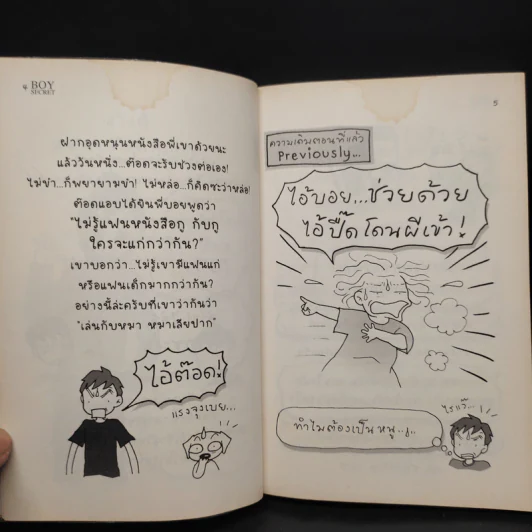 4 BOY
SECRET
ฝากอุดหนุนหนังสือพี่เขาด้วยนะ
แล้ววันหนึ่ง...ต๊อดจะรับช่วงต่อเอง!
ไม่ขำ...ก็พยายามขำ! ไม่หล่อ...ก็คิดซะว่าหล่อ!
ต๊อดแอบได้ยินพี่บอยพูดว่า
"ไม่รู้แฟนหนังสือกู กับกู
ใครจะแก่กว่ากัน?"
เขาบอกว่า...ไม่รู้เขามีแฟนแก่
หรือแฟนเด็กมากกว่ากัน?
อย่างนี้ล่ะครับที่เขาว่ากันว่า
"เล่นกับหมา หมาเลียปาก"
ไอ้ต๊อด!
แรงจุงเบย...
5
ความเดิมตอนที่แล้ว
Previously...
ไอ้บอย...ช่วยด้วย
ไอ้ปื๊ดโดนผีเข้า!
ทำไมต้องเป็นหนู...